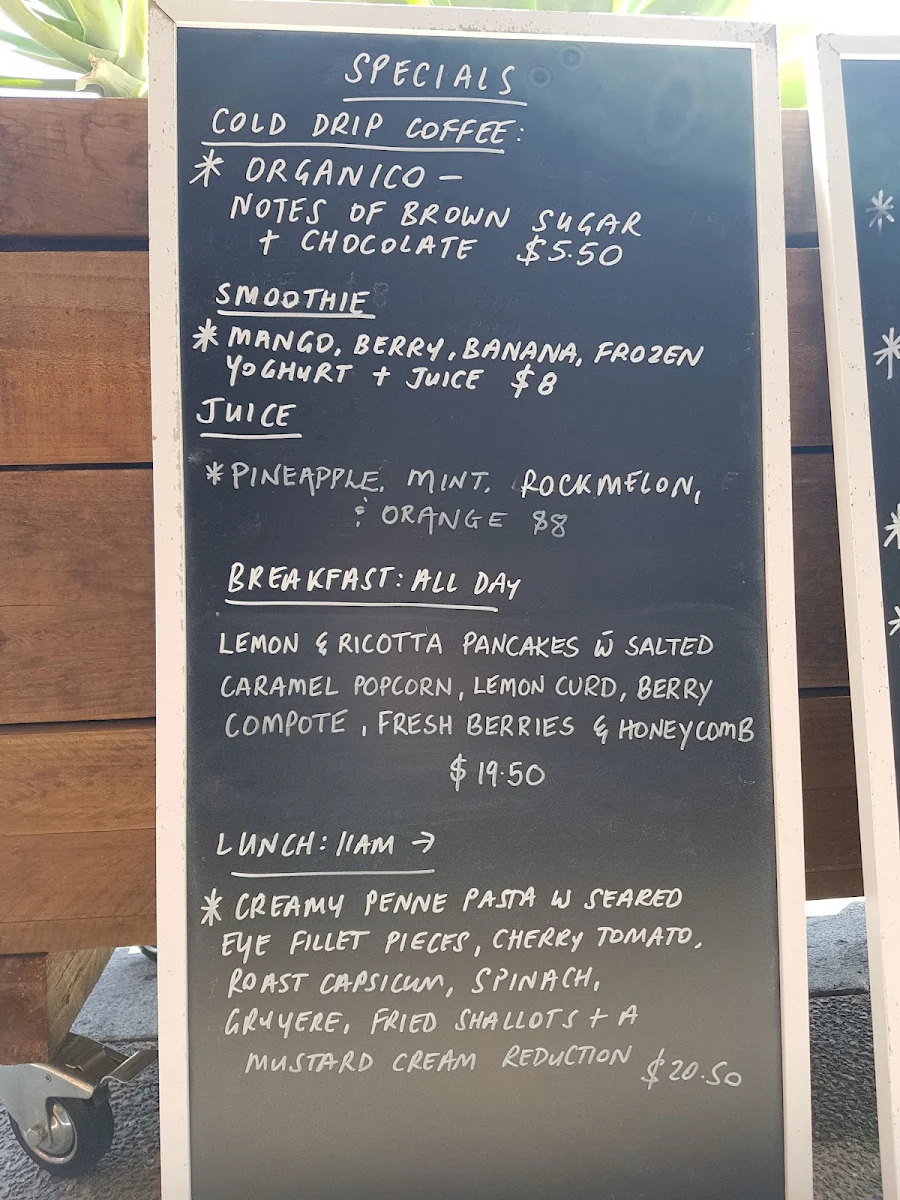 SPECIALS
COLD DRIP COFFEE:
* ORGANICO -
NOTES OF BROWN SUGAR
+ CHOCOLATE $5.50
SMOOTHIE
* MANGO, BERRY, BANANA, FROZEN
YOGHURT + JUICE $8
JUICE
* PINEAPPLE, MINT, ROCKMELON,
& ORANGE $8
BREAKFAST: ALL DAY
LEMON & RICOTTA PANCAKES W̄ SALTED
CARAMEL POPCORN, LEMON CURD, BERRY
COMPOTE, FRESH BERRIES & HONEYCOMB
$19.50
LUNCH: 11AM →
* CREAMY PENNE PASTA W SEARED
EYE FILLET PIECES, CHERRY TOMATO,
ROAST CAPSICUM, SPINACH,
GRUYERE, FRIED SHALLOTS + A
MUSTARD CREAM REDUCTION $20.50